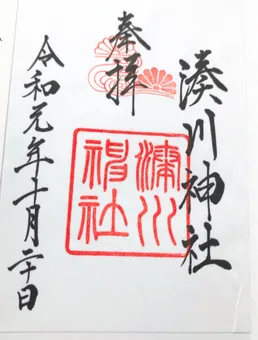 湊川神社
奉拝
湊川
神社
令和元年十一月二十日